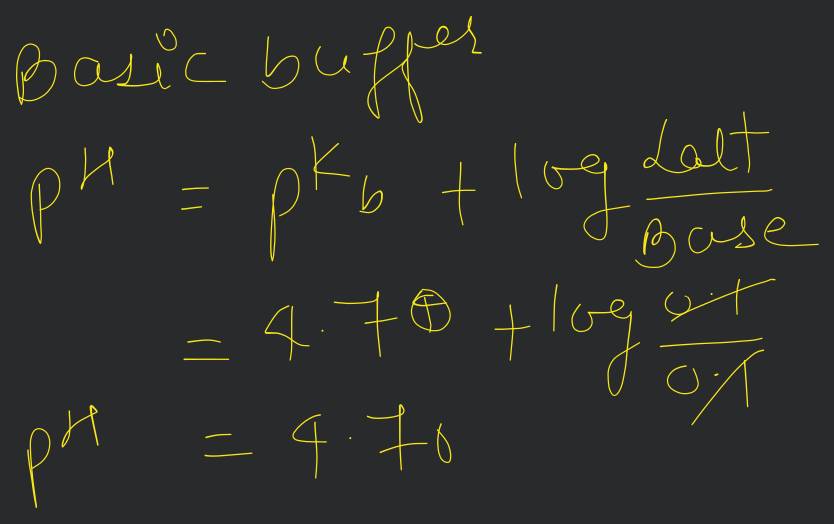 Basic buffer
pH = pKb + log Salt / Base
= 4.70 + log 0.1 / 0.1
pH = 4.70